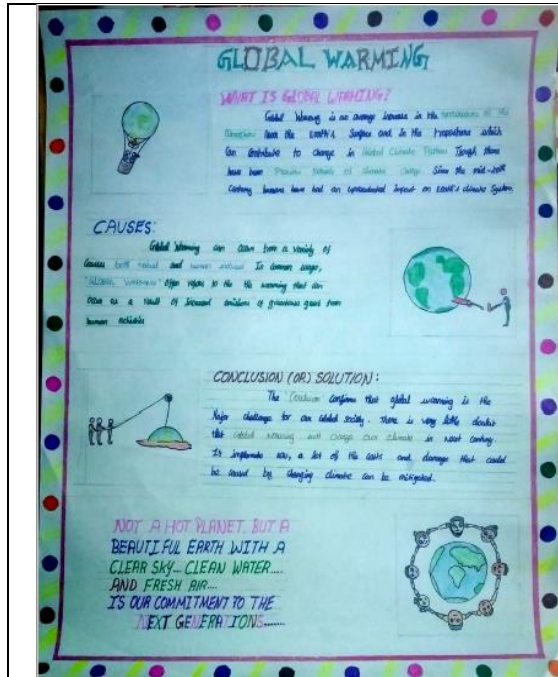 GLOBAL WARMING
WHAT IS GLOBAL WARMING?
Global Warming is an average increase in the temperature of the
near the Earth's Surface and in the troposhere which
can contribute to change in Global Climate Pattern Tough there
have been Previous periods of climatic change Since the mid-20th
Century humans have had an unprecedented impact on Earth's climate System.
CAUSES:
Global Warming can occur from a variety of
Causes both natural and human induced In Common usage,
"GLOBAL WARMING" often refers to the the warming that can
occur as a result of increased emissions of greenhouse gases from
human activities
CONCLUSION (OR) SOLUTION:
The Conclusion confirms that global warming is the
Major challenge for our global society. There is very little doubt
that Global warming will change our climate in next century.
If implemente now, a lot of the costs and damage that could
be caused by changing climate can be mitigated.
NOT A HOT PLANET, BUT A
BEAUTIFUL EARTH WITH A
CLEAR SKY... CLEAN WATER....
AND FRESH AIR....
IS OUR COMMITMENT TO THE
NEXT GENERATIONS.......